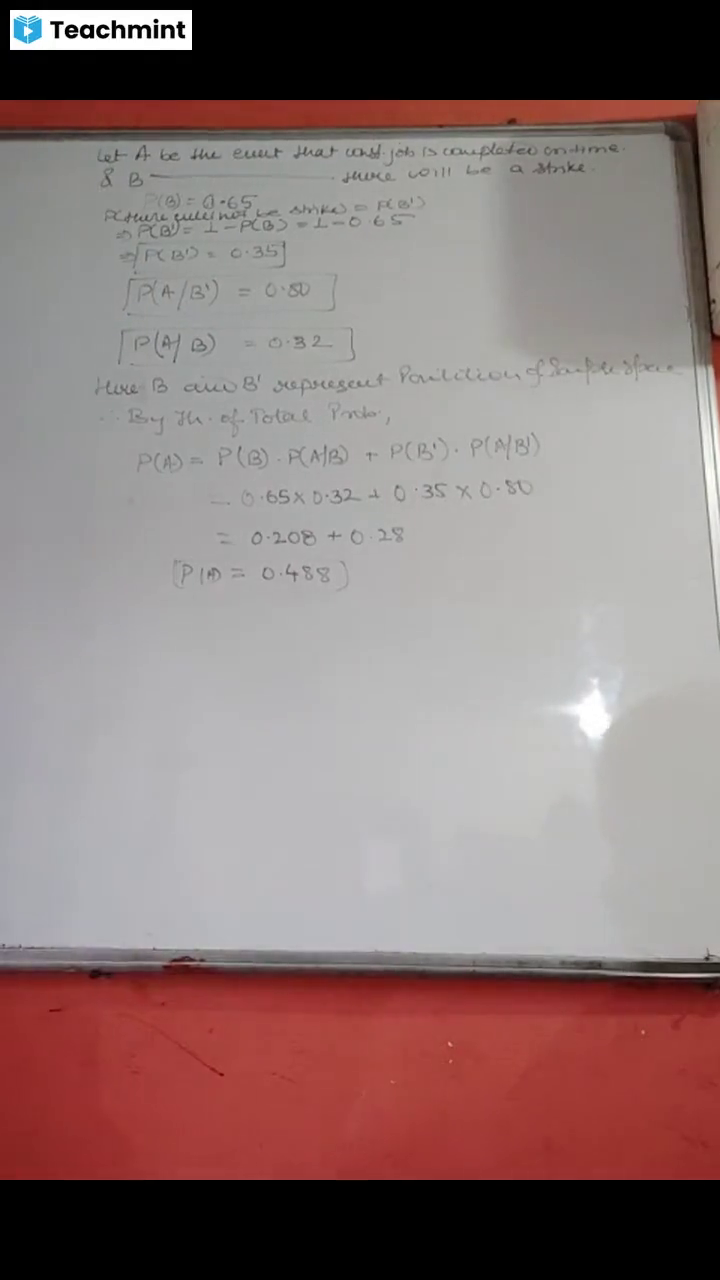 Teachmint
Let A be the event that const. job is completed on time.
& B ———————— there will be a strike.
P(B) = 0.65
P(there will not be strike) = P(B')
⇒ P(B') = 1 - P(B) = 1 - 0.65
⇒ P(B') = 0.35
P(A/B') = 0.80
P(A/B) = 0.32
Here B and B' represent Partition of Sample Space
∴ By Th. of Total Prob,
P(A) = P(B) . P(A/B) + P(B') . P(A/B')
= 0.65 × 0.32 + 0.35 × 0.80
= 0.208 + 0.28
P(A) = 0.488